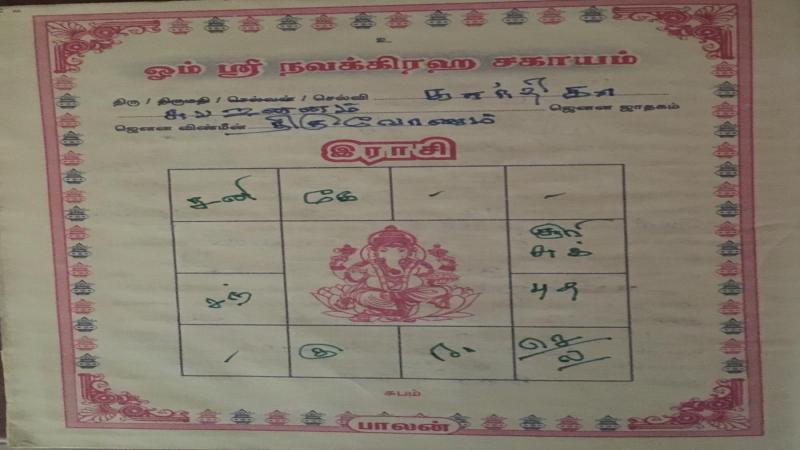 உ
ஓம் ஸ்ரீ நவக்கிரஹ சகாயம்
திரு / திருமதி / செல்வன் / செல்வி கார்த்திகா
ஜெனன ஜாதகம்
ஜெனன விண்மீன் திருவோணம்
இராசி
சனி கே - -
சூரி
சுக்
சந் புத
குரு ரா செ
ல
சுபம்
பாலன்